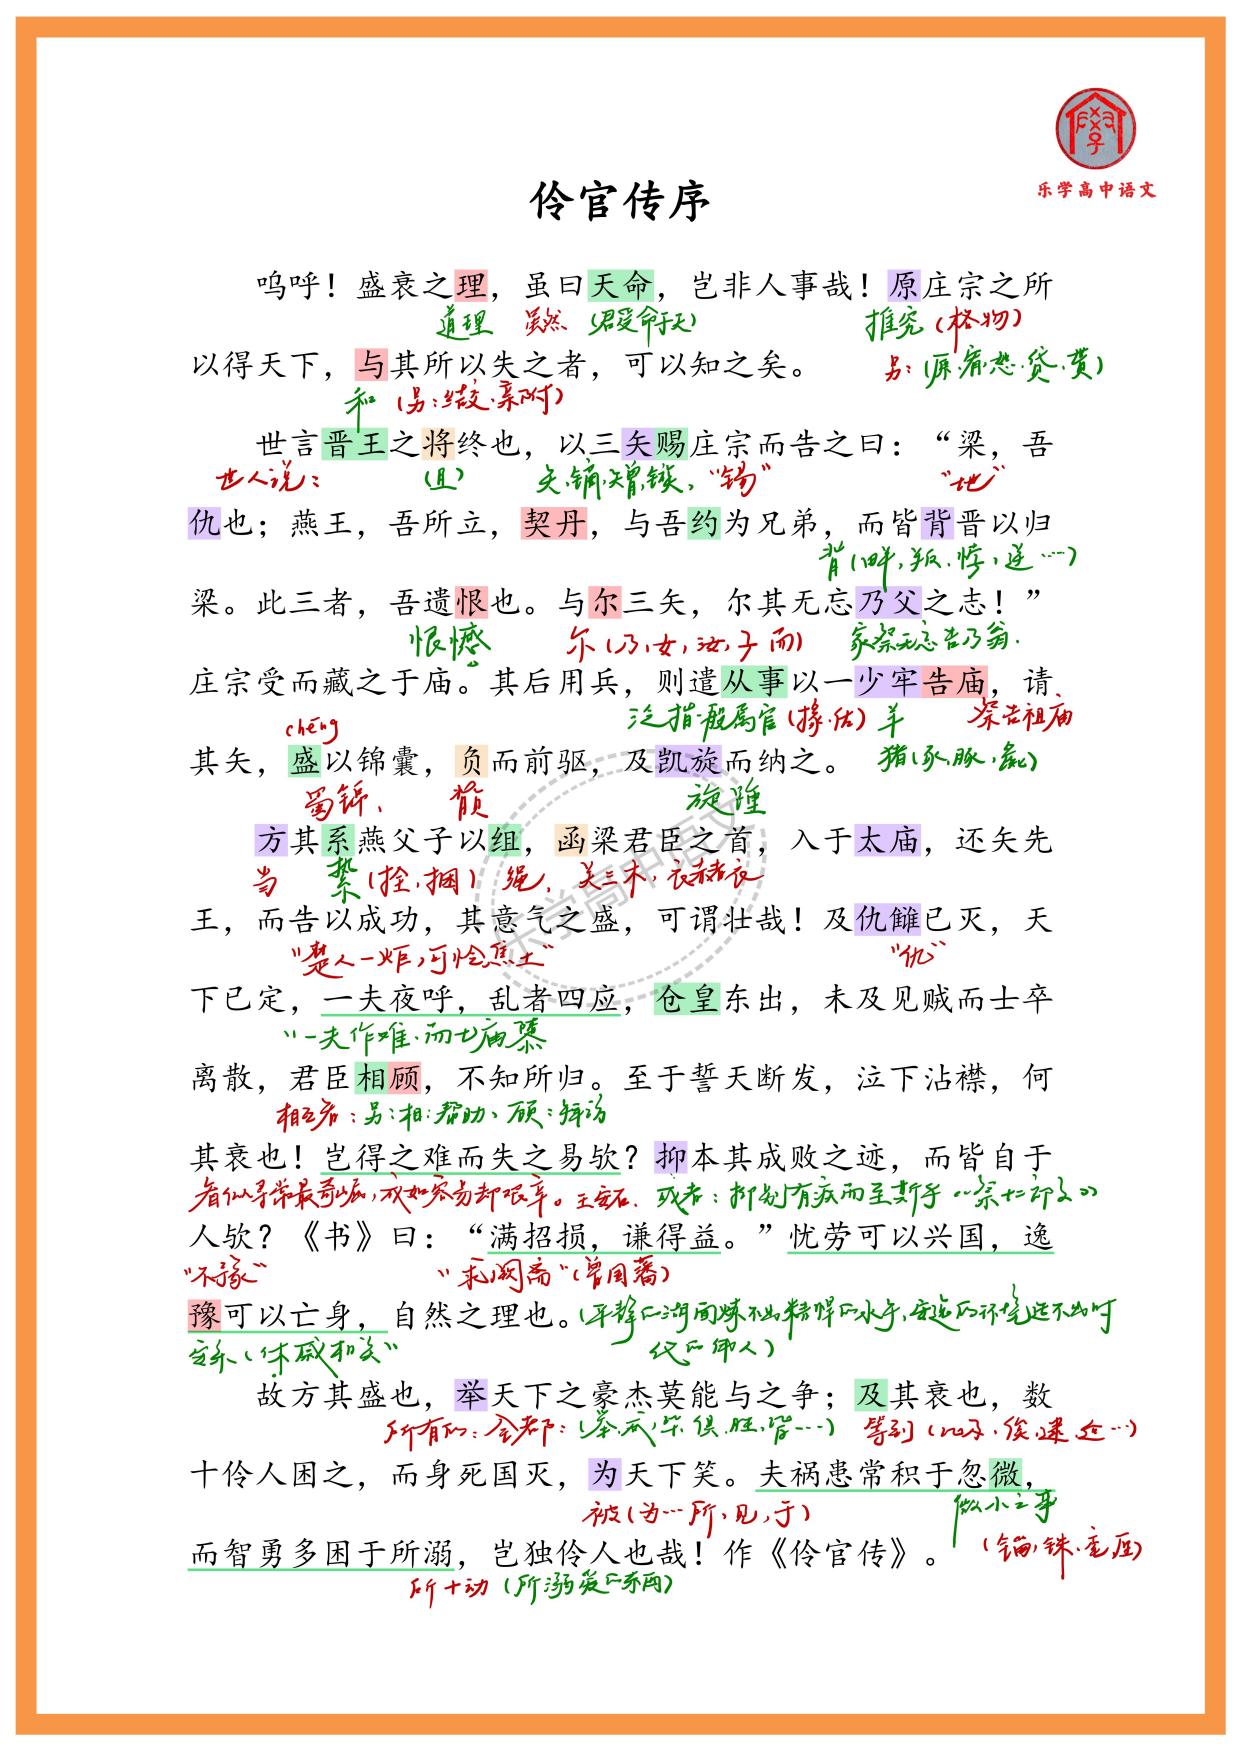 乐学高中语文
伶官传序
呜呼！盛衰之理，虽曰天命，岂非人事哉！原庄宗之所
道理 虽然 (君受命于天) 推究 (格物)
以得天下，与其所以失之者，可以知之矣。
和 (另:结交、亲附)
世言晋王之将终也，以三矢赐庄宗而告之曰：“梁，吾
世人说： (且) “锡” “地”
仇也；燕王，吾所立，契丹，与吾约为兄弟，而皆背晋以归
背(畔，叛、悖，逆……)
梁。此三者，吾遗恨也。与尔三矢，尔其无忘乃父之志！”
恨憾 尔(乃，女，汝，子 而) 家祭无忘告乃翁.
庄宗受而藏之于庙。其后用兵，则遣从事以一少牢告庙，请
chéng 泛指一般属官(掾、佐) 羊 祭告祖庙
其矢，盛以锦囊，负而前驱，及凯旋而纳之。
猪(豕、豚、彘)
蜀锦、 背 旋踵
方其系燕父子以组，函梁君臣之首，入于太庙，还矢先
当 絷(拴、捆) 绳、 关三木，衣赭衣
王，而告以成功，其意气之盛，可谓壮哉！及仇雠已灭，天
“楚人一炬，可怜焦土” “仇”
下已定，一夫夜呼，乱者四应，仓皇东出，未及见贼而士卒
“一夫作难、而七庙隳
离散，君臣相顾，不知所归。至于誓天断发，泣下沾襟，何
相互看；另：相：帮助、顾：拜访
其衰也！岂得之难而失之易欤？抑本其成败之迹，而皆自于
看似寻常最奇崛，成如容易却艰辛。王安石. 或者：抑别有疾而至斯乎《祭十二郎文》
人欤？《书》曰：“满招损，谦得益。”忧劳可以兴国，逸
“不豫” “求阙斋”(曾国藩)
豫可以亡身，自然之理也。(平静的湖面炼不出精悍的水手，安逸的环境造不出时
安乐(休戚相关” 代的伟人)
故方其盛也，举天下之豪杰莫能与之争；及其衰也，数
所有的：全都： 等到
十伶人困之，而身死国灭，为天下笑。夫祸患常积于忽微，
被(为…所，见，于) 微小之事
而智勇多困于所溺，岂独伶人也哉！作《伶官传》。
(锱，铢、毫厘)
所+动 (所溺爱的东西)
乐学高中语文